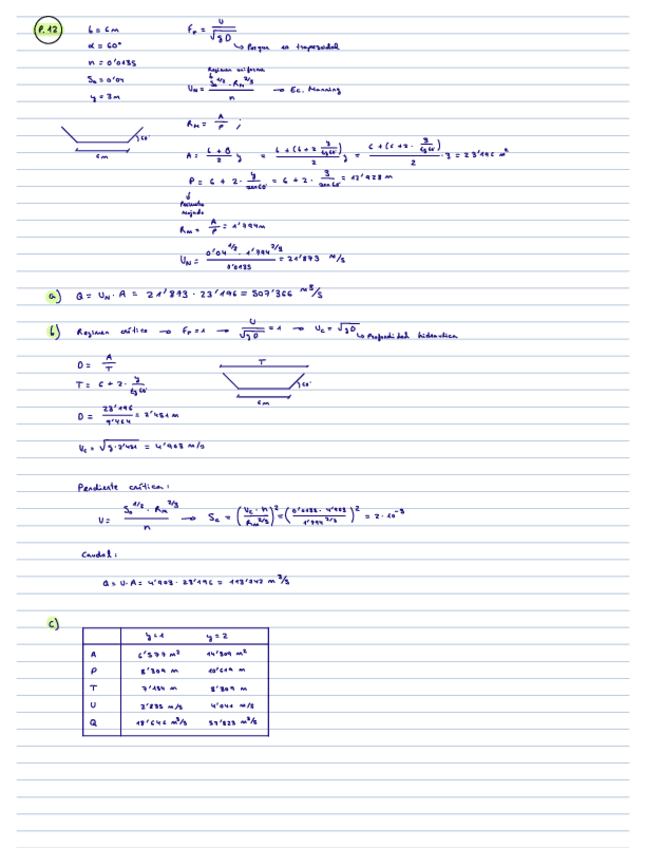 P.12
b = 6m
α = 60°
n = 0'0135
S₀ = 0'04
y = 3m
Fr = U / √(g D)
↳ Porque es trapezoidal
Regimen uniforme
U_N = S₀^1/2 · R_H^2/3 / n → Ec. Manning
R_H = A / P ;
60°
6m
A = (b + B) / 2 · y = (b + (b + 2 · y/tg60)) / 2 · y = (6 + (6 + 2 · 3/tg60)) / 2 · 3 = 23'196 m²
P = 6 + 2 · y/sen60 = 6 + 2 · 3/sen60 = 12'928 m
↓
Perimetro
mojado
R_H = A / P = 1'794m
U_N = 0'04^1/2 · 1'794^2/3 / 0'0135 = 21'873 m/s
a) Q = U_N · A = 21'873 · 23'196 = 507'366 m³/s
b) Regimen crítico → Fr = 1 → U / √(g D) = 1 → U_c = √(g D)
↳ Profundidad hidraulica
D = A / T
T = 6 + 2 · y / tg60
T
60°
6m
D = 23'196 / 9'464 = 2'451 m
U_c = √(g · 2'451) = 4'903 m/s
Pendiente crítica:
U = S₀^1/2 · R_H^2/3 / n → S_c = (U_c · n / R_H^2/3)² = (0'0135 · 4'903 / 1'794^2/3)² = 2 · 10⁻³
Caudal:
Q = U · A = 4'903 · 23'196 = 113'742 m³/s
c)
y = 1 y = 2
A 6'577 m² 14'309 m²
P 8'309 m 10'619 m
T 7'154 m 8'309 m
U 2'835 m/s 4'041 m/s
Q 18'646 m³/s 57'823 m³/s